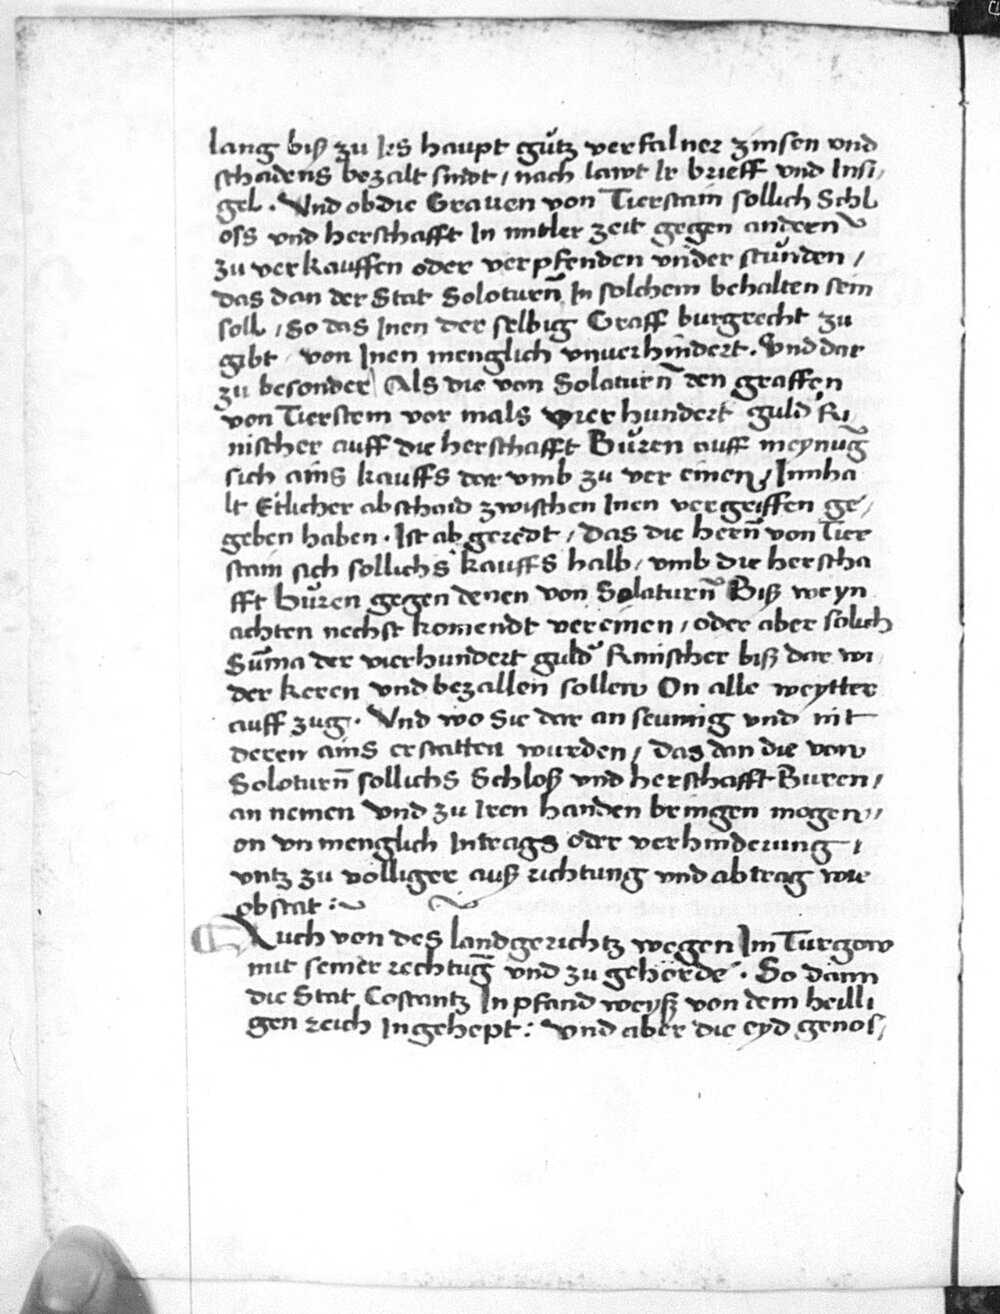 lang biß zu Irs haupt gůtz verfalner zinsen vnd
schadens bezalt sindt / nach lawt Ir brieff vnd Insi,
gel. Vnd ob die Grauen von Tierstain sollich Schl
oss vnd herschafft In mitler zeit gegen andern
zu verkauffen oder verpfenden vnder stůnden /
das dan der Stat Soloturn̄ In solchem behalten sein
soll / So das Inen der selbig Graff burgrecht zu
gibt / von Inen menglich vnuerhindert. Vnd dar
zu besonder Als die von Solaturn̄ den graffen
von Tierstein vor mals vierhundert guld Ri,
nischer auff die herschafft Bůren auff meynūg
sich ains kauffs dar vmb zu ver einen / Innha
lt Etlicher abschaid zwischen Inen vergriffen ge,
geben haben. Ist ab geredt / das die hern̄ von Tier
stain sich sollichs kauffs halb / vmb die herscha
fft bůren gegen denen von Solaturn̄ Biß weyn
achten nechst komendt vereinen / oder aber solich
Sūma der vierhundert guld Rinischer biß dar wi
der keren vnd bezallen sollen On alle weytter
auff zug. Vnd wo Sie dar an seumig vnd nit
deren ains erstatten wurden / das dan die von
Soloturn̄ sollichs Schloß vnd herschafft Buren /
an nemen vnd zu Iren handen bringen mogen /
on vn menglich Intrags oder verhinderung /
vntz zu volliger auß richtung vnd abtrag wie
obstat :~
Auch von des landgerichtz wegen Im Turgow
mit seiner rechtūg vnd zu gehörde. So dann
die Stat Costantz In pfand weyß von dem heilli
gen reich Ingehept : vnd aber die eyd genos,